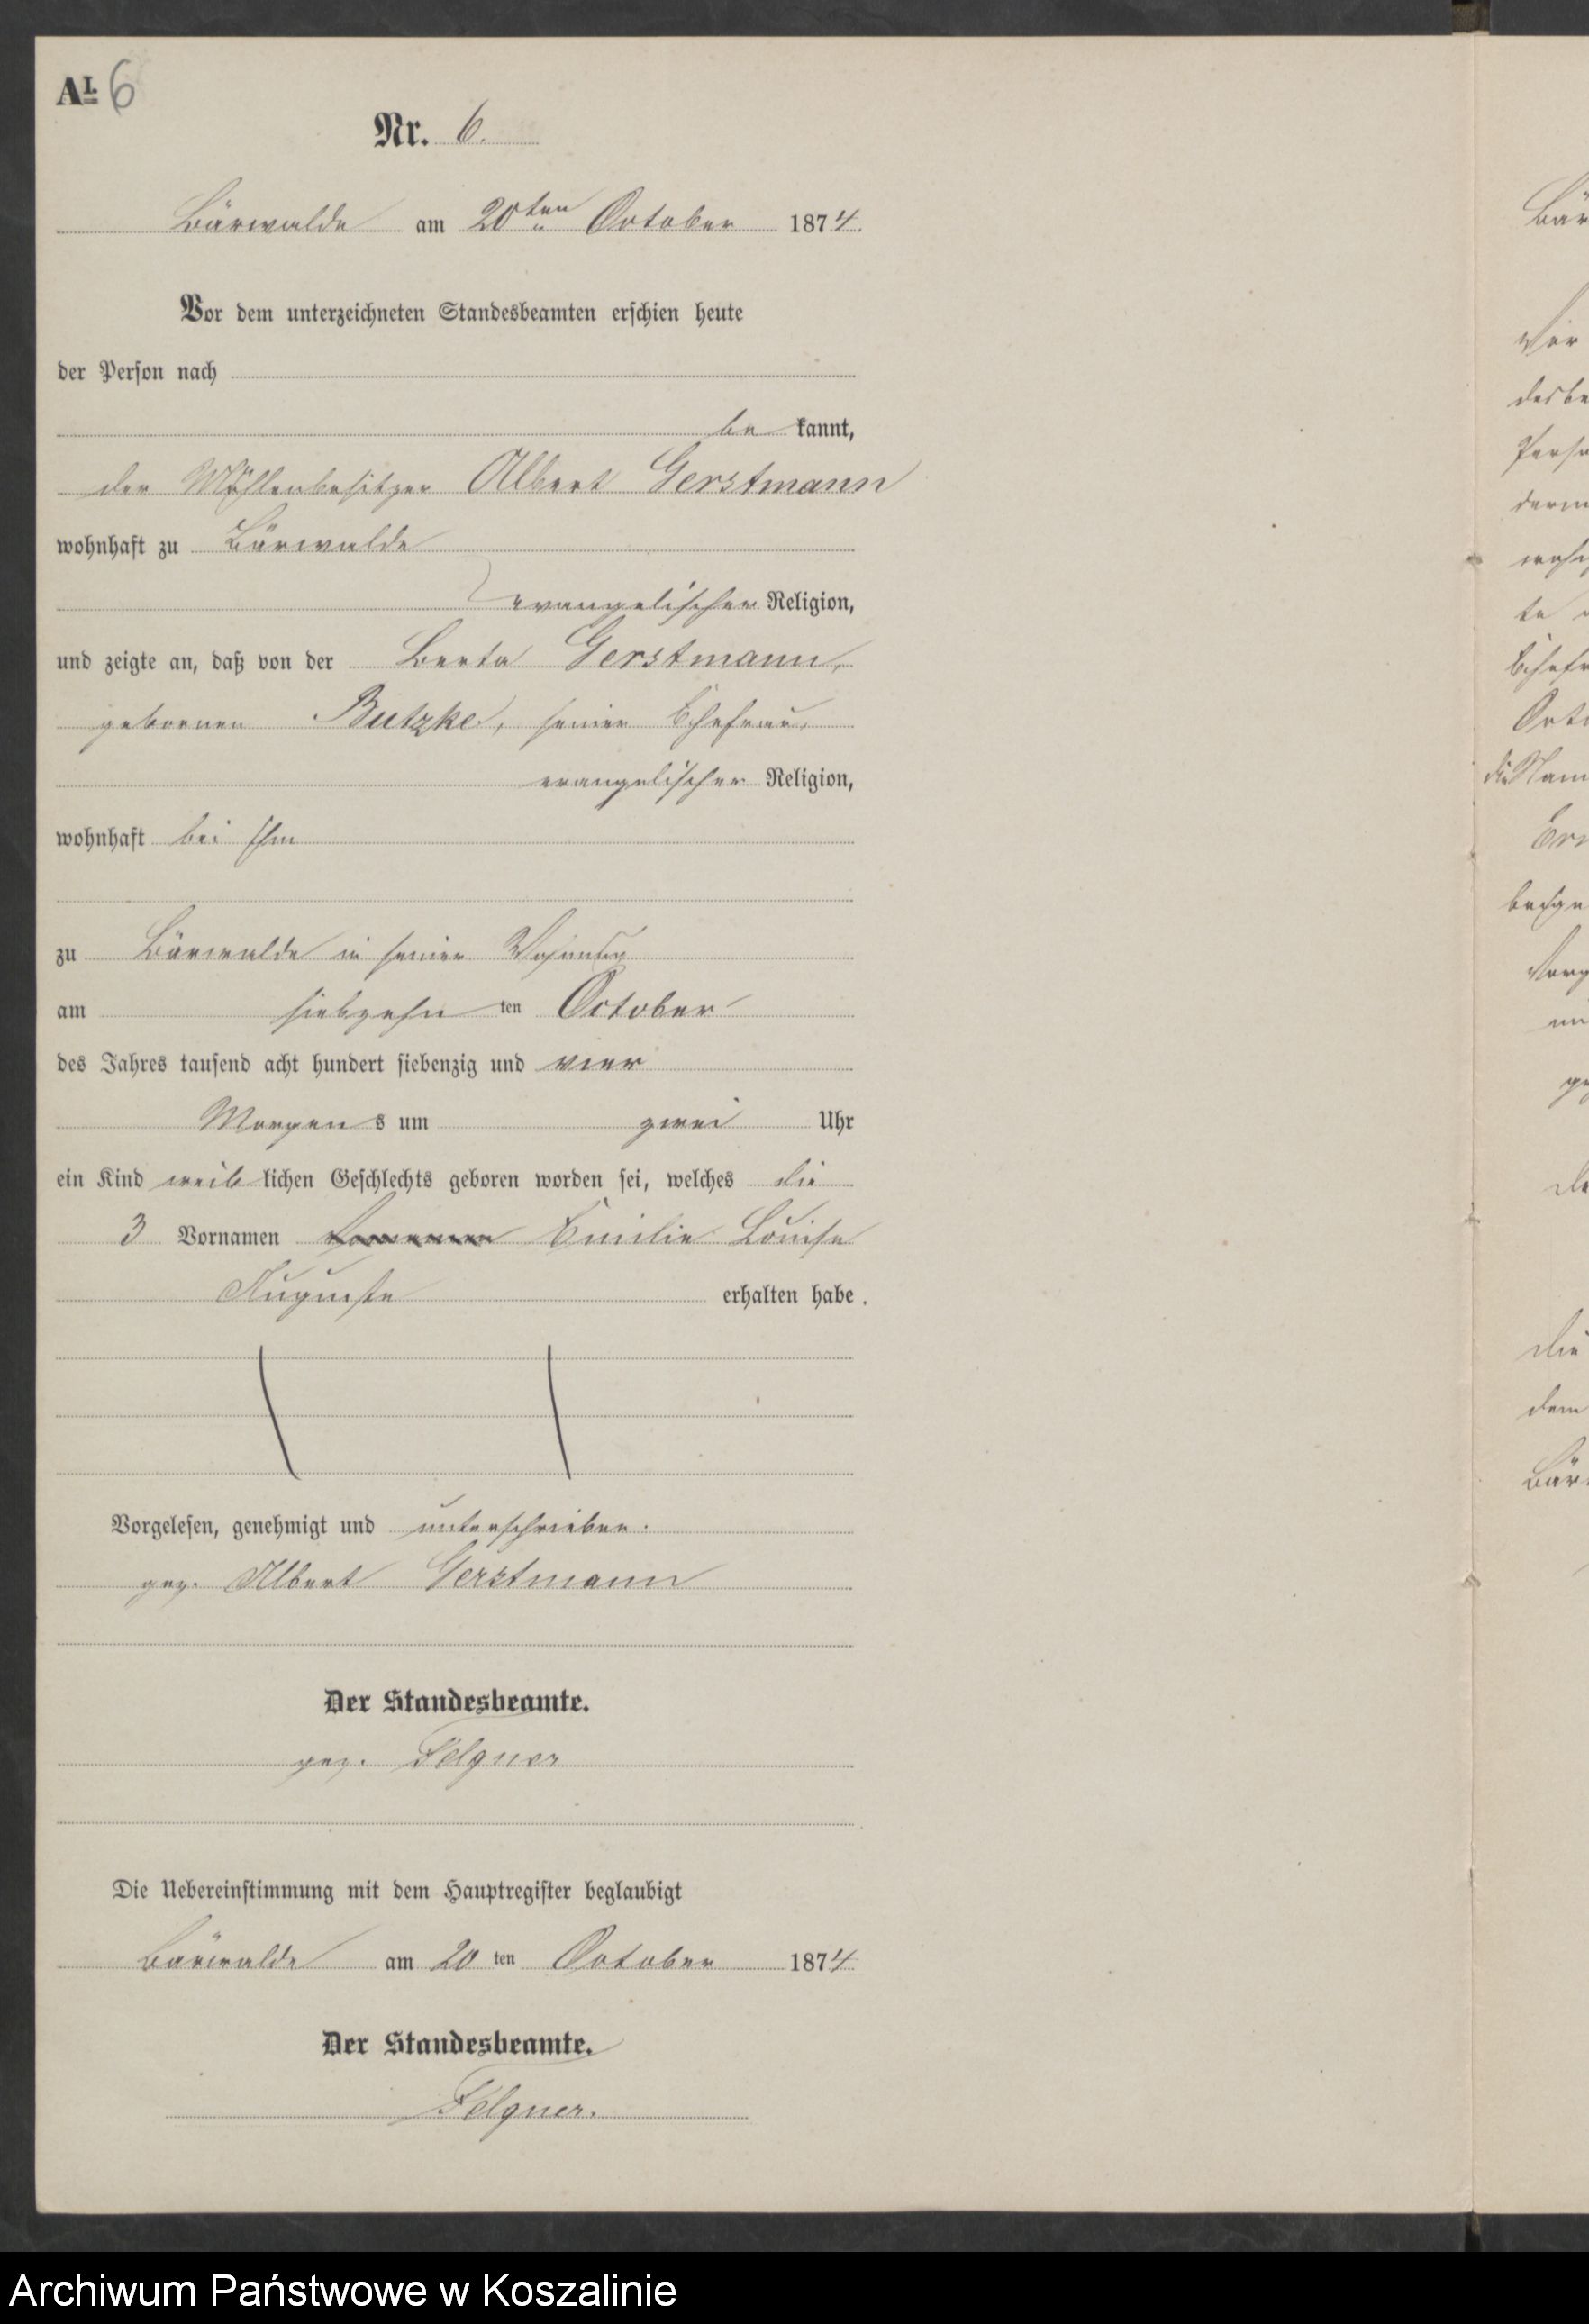 A I. 6
Nr. 6.
Bärwalde am 20ten October 1874.
Vor dem unterzeichneten Standesbeamten erschien heute
der Person nach
be kannt,
der Mühlenbesitzer Albert Gerstmann
wohnhaft zu Bärwalde
evangelischer Religion,
und zeigte an, daß von der Berta Gerstmann,
gebornen Butzke, seiner Ehefrau,
evangelischer Religion,
wohnhaft bei Ihm
zu Bärwalde in seiner Wohnung
am siebzehn ten October
des Jahres tausend acht hundert siebenzig und vier
Morgen s um zwei Uhr
ein Kind weib lichen Geschlechts geboren worden sei, welches die
3 Vornamen Emilie Louise
Auguste erhalten habe.
Vorgelesen, genehmigt und unterschrieben.
gez. Albert Gerstmann
Der Standesbeamte.
gez. Felgner
Die Uebereinstimmung mit dem Hauptregister beglaubigt
Bärwalde am 20 ten October 1874
Der Standesbeamte.
Felgner.
Archiwum Państwowe w Koszalinie